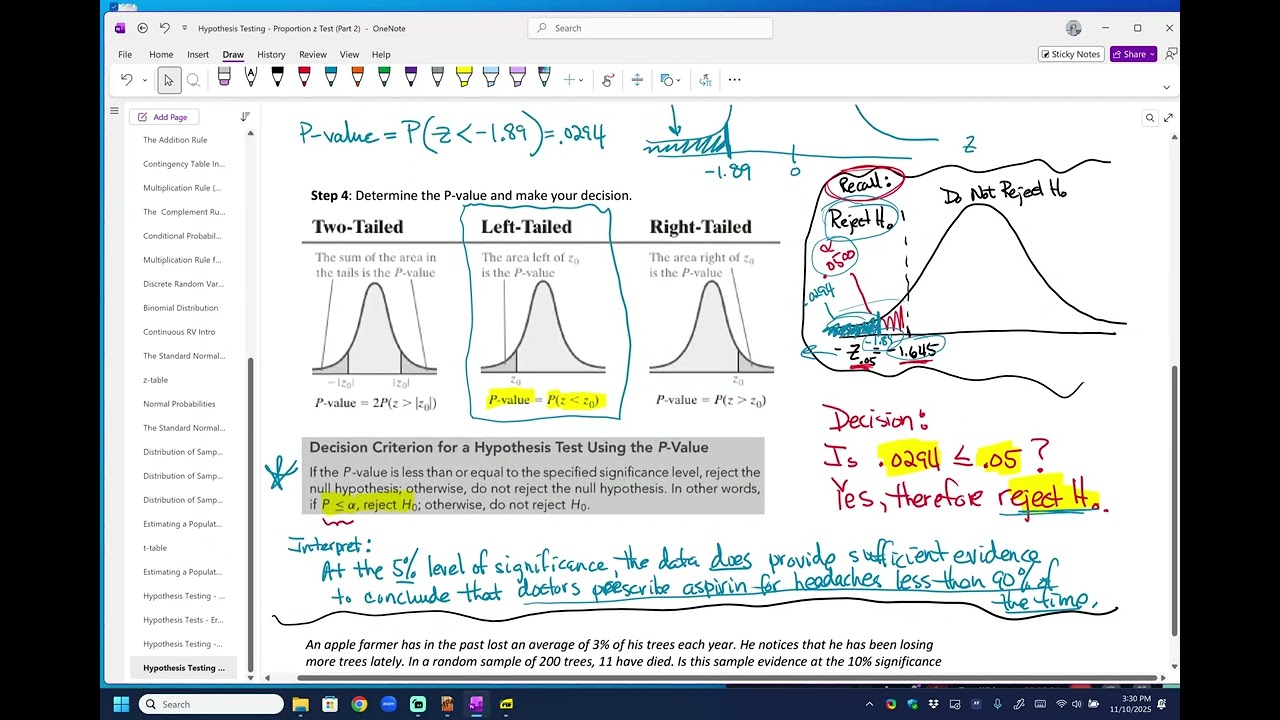 Hypothesis Testing - Proportion z Test (Part 2) - OneNote
Search
File Home Insert Draw History Review View Help
Sticky Notes
Share
Add Page
The Addition Rule
Contingency Table In...
Multiplication Rule (...
The Complement Ru...
Conditional Probabil...
Multiplication Rule f...
Discrete Random Var...
Binomial Distribution
Continuous RV Intro
The Standard Normal...
z-table
Normal Probabilities
The Standard Normal...
Distribution of Samp...
Distribution of Samp...
Distribution of Samp...
Estimating a Populat...
t-table
Estimating a Populat...
Hypothesis Testing -...
Hypothesis Tests - Er...
Hypothesis Testing -...
Hypothesis Testing ...
P-value = P(z < -1.89) = .0294
-1.89 0 z
Step 4: Determine the P-value and make your decision.
Two-Tailed
The sum of the area in
the tails is the P-value
-|z₀| |z₀|
P-value = 2P(z > |z₀|)
Left-Tailed
The area left of z₀
is the P-value
z₀
P-value = P(z < z₀)
Right-Tailed
The area right of z₀
is the P-value
z₀
P-value = P(z > z₀)
Recall:
Reject H₀
Do Not Reject H₀
α
.0500
.0294
-z.05 = -1.645
Decision Criterion for a Hypothesis Test Using the P-Value
If the P-value is less than or equal to the specified significance level, reject the
null hypothesis; otherwise, do not reject the null hypothesis. In other words,
if P ≤ α, reject H₀; otherwise, do not reject H₀.
Decision:
Is .0294 ≤ .05 ?
Yes, therefore reject H₀.
Interpret:
At the 5% level of significance, the data does provide sufficient evidence
to conclude that doctors prescribe aspirin for headaches less than 90% of
the time.
An apple farmer has in the past lost an average of 3% of his trees each year. He notices that he has been losing
more trees lately. In a random sample of 200 trees, 11 have died. Is this sample evidence at the 10% significance
Search
3:30 PM
11/10/2025